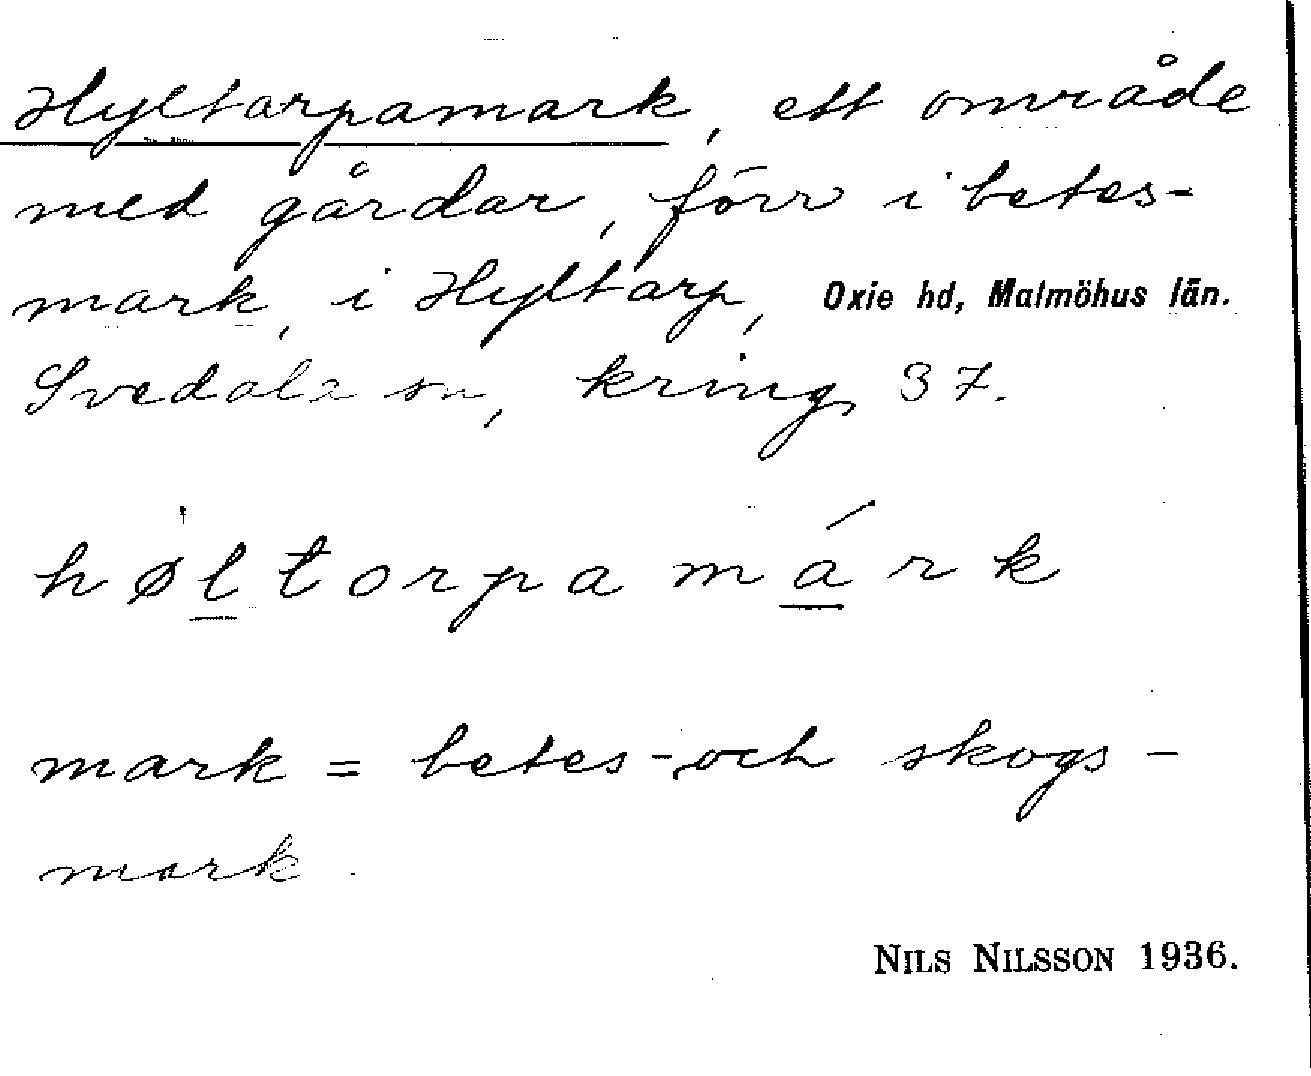 Hyltarpamark, ett område
med gårdar, förr i betes-
mark, i Hyltarp, Oxie hd, Malmöhus län.
Svedala sn, kring 37.
høltorpamárk
mark = betes- och skogs-
mark.
NILS NILSSON 1936.